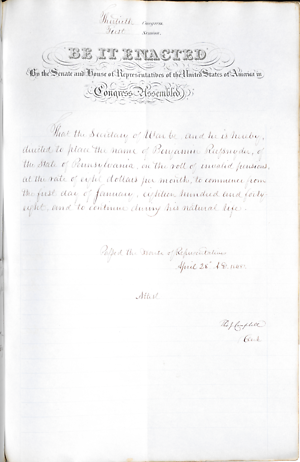 Thirtieth Congress
First Session
BE IT ENACTED
By the Senate and House of Representatives of the United States of America in
Congress Assembled
That the Secretary of War be, and he is hereby,
directed to place the name of Benjamin of
the State of Pennsylvania, on the roll of invalid pensions,
at the rate of eight dollars per month, to commence from
the first day of January, eighteen hundred and forty
eight, and to continue during his natural life.
Passed the House of Representatives
April 28 1848
Attest
Tho J Campbell
Clerk